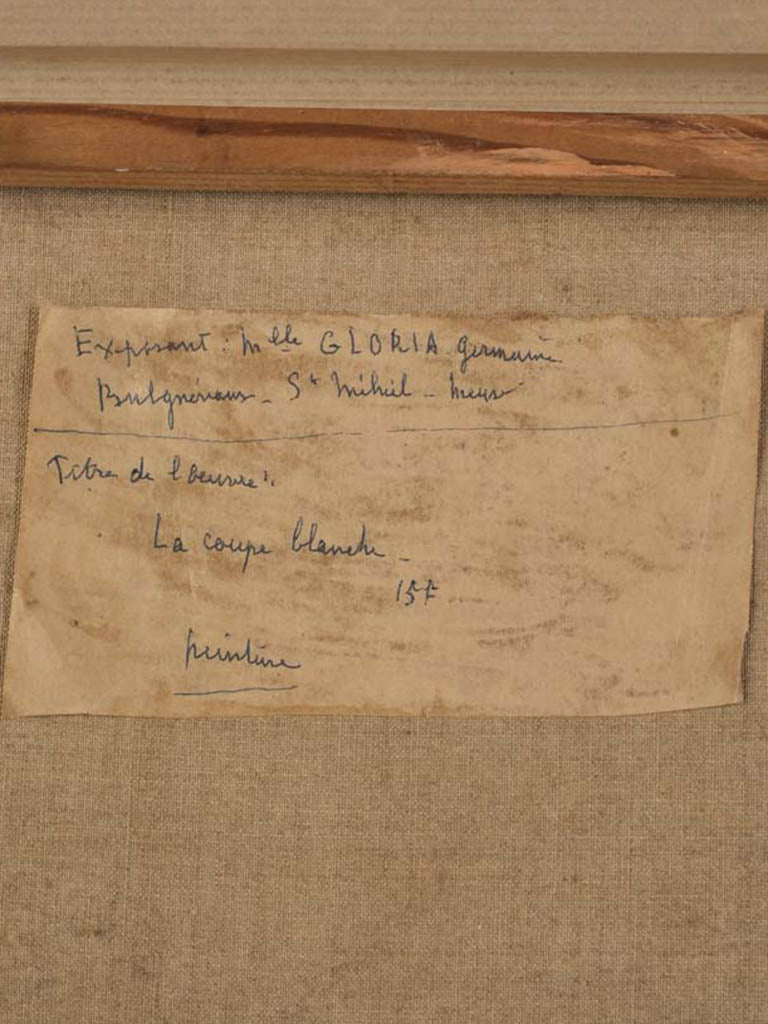 Exposant : Mlle GLORIA germaine
St Mihiel - Meuse
Titre de l'oeuvre :
La coupe blanche -
15F
peinture